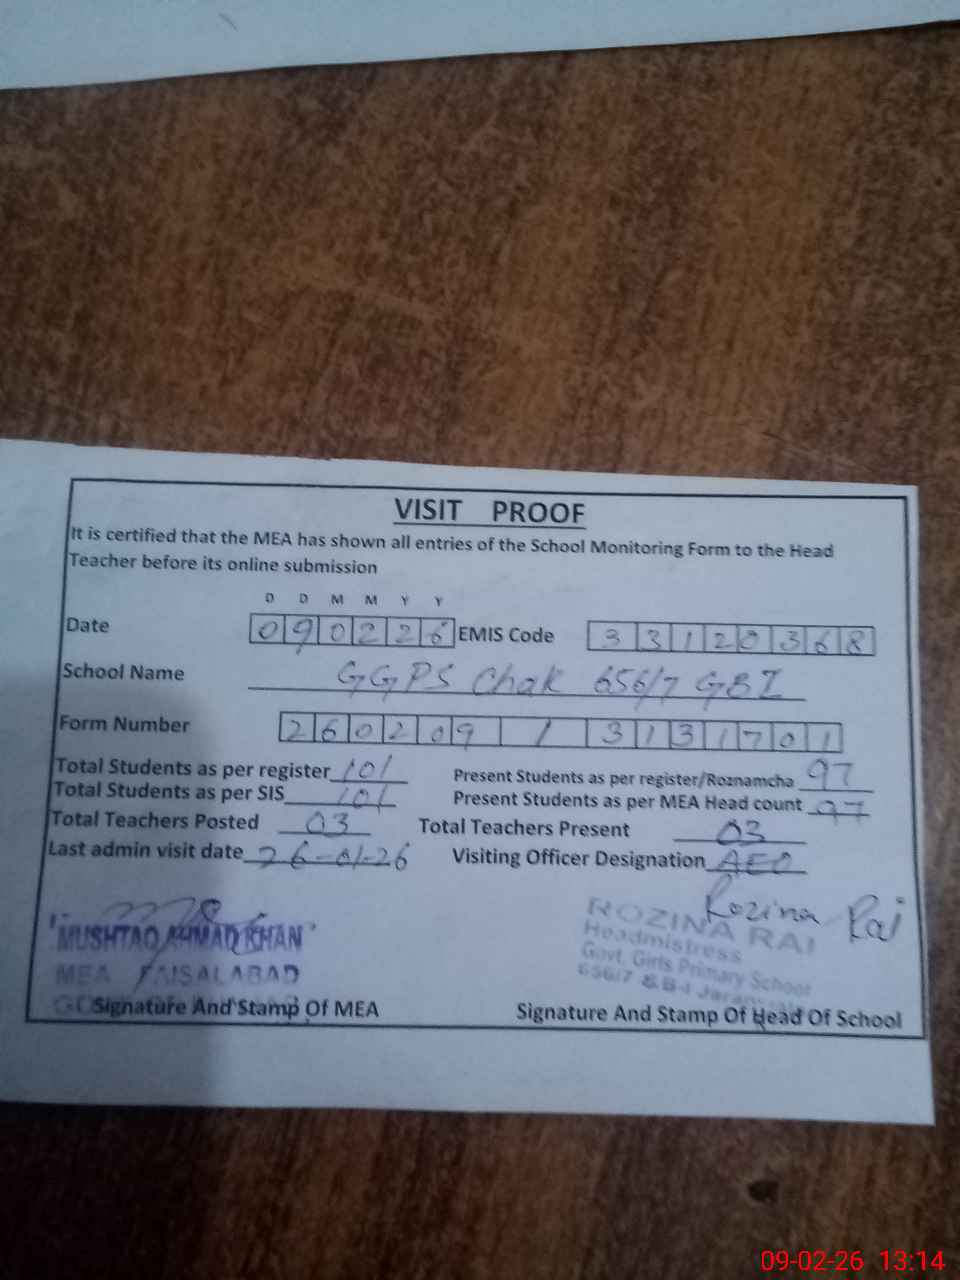 VISIT PROOF
It is certified that the MEA has shown all entries of the School Monitoring Form to the Head
Teacher before its online submission
D D M M Y Y
Date 090226 EMIS Code 33120368
School Name GGPS Chak 656/7 GBI
Form Number 260209 / 3131701
Total Students as per register 101 Present Students as per register/Roznamcha 97
Total Students as per SIS 101 Present Students as per MEA Head count 97
Total Teachers Posted 03 Total Teachers Present 03
Last admin visit date 26-01-26 Visiting Officer Designation AEO
Rozina Rai
MUSHTAQ AHMAD KHAN
MEA FAISALABAD
ROZINA RAI
Headmistress
Govt. Girls Primary School
656/7
Signature And Stamp Of MEA Signature And Stamp Of Head Of School
09-02-26 13:14